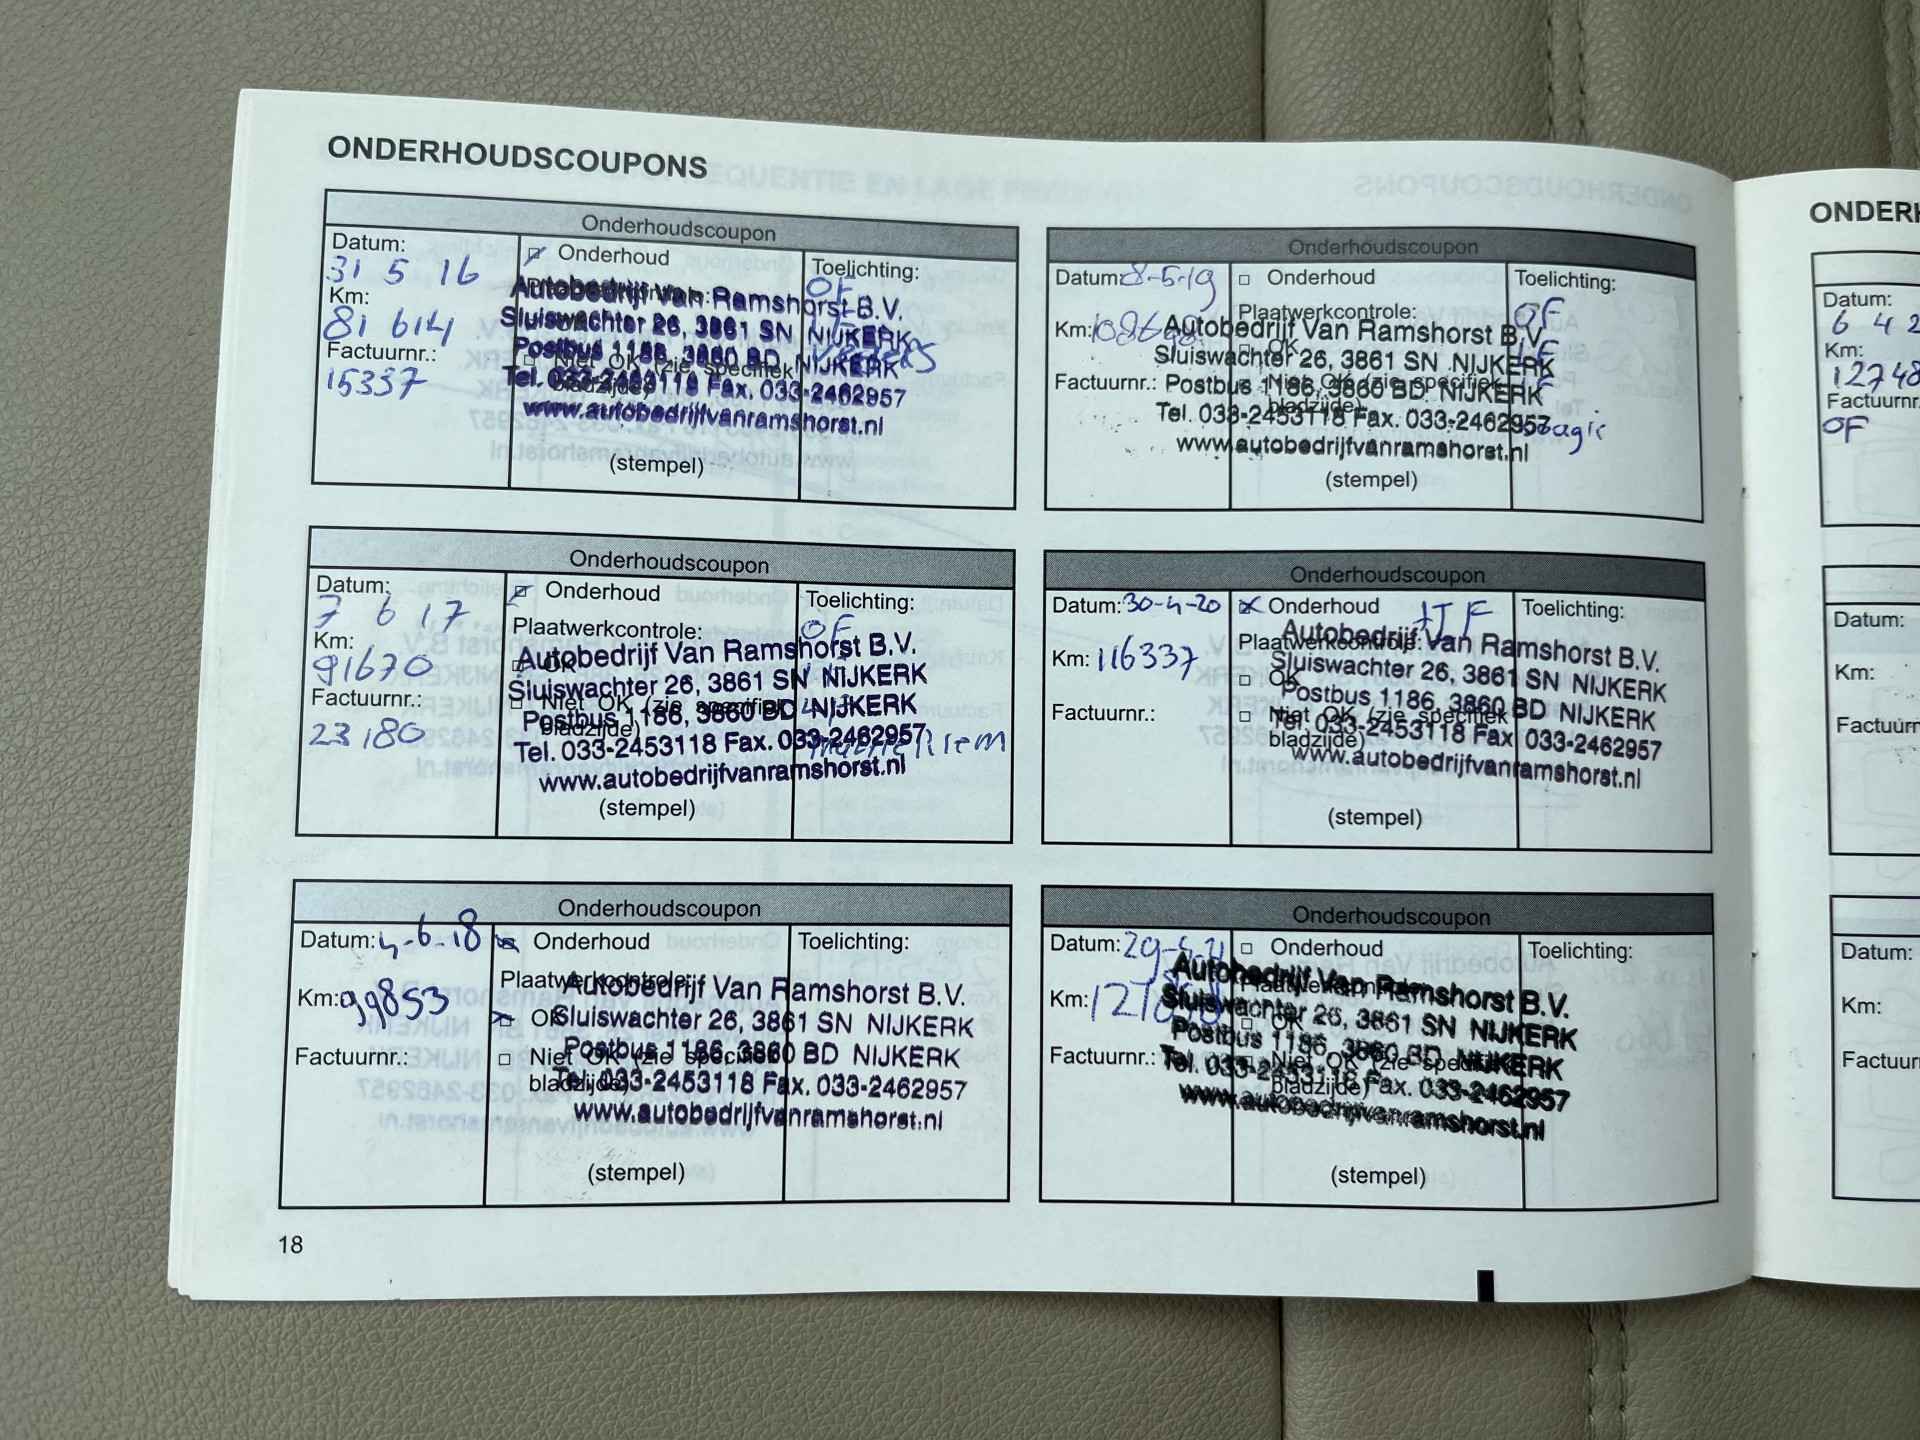 ONDERHOUDSCOUPONS
Onderhoudscoupon
Datum:
31 5 16
Km:
81 614
Factuurnr.:
15337
Onderhoud
Toelichting:
OF
Autobedrijf Van Ramshorst B.V.
Sluiswachter 26, 3861 SN NIJKERK
Postbus 1186, 3860 BD NIJKERK
Niet OK (zie specifiek
bladzijde)
Tel. 033-2453118 Fax. 033-2462957
www.autobedrijfvanramshorst.nl
(stempel)
Onderhoudscoupon
Datum:
7 6 17
Km:
91670
Factuurnr.:
23180
Onderhoud
Plaatwerkcontrole:
OK
Niet OK (zie specifiek
bladzijde)
Toelichting:
OF
Autobedrijf Van Ramshorst B.V.
Sluiswachter 26, 3861 SN NIJKERK
Postbus 1186, 3860 BD NIJKERK
Tel. 033-2453118 Fax. 033-2462957
www.autobedrijfvanramshorst.nl
(stempel)
Onderhoudscoupon
Datum: 4-6-18
Km: 99853
Factuurnr.:
Onderhoud
Plaatwerkcontrole:
OK
Niet OK (zie specifiek
bladzijde)
Toelichting:
Autobedrijf Van Ramshorst B.V.
Sluiswachter 26, 3861 SN NIJKERK
Postbus 1186, 3860 BD NIJKERK
Tel. 033-2453118 Fax. 033-2462957
www.autobedrijfvanramshorst.nl
(stempel)
18
Onderhoudscoupon
Datum: 8-5-19
Km: 108698
Factuurnr.:
Onderhoud
Plaatwerkcontrole:
OK
Niet OK (zie specifiek
bladzijde)
Toelichting:
OF
Autobedrijf Van Ramshorst B.V.
Sluiswachter 26, 3861 SN NIJKERK
Postbus 1186, 3860 BD NIJKERK
Tel. 033-2453118 Fax. 033-2462957
www.autobedrijfvanramshorst.nl
(stempel)
Onderhoudscoupon
Datum: 30-4-20
Km: 116337
Factuurnr.:
Onderhoud
Plaatwerkcontrole:
OK
Niet OK (zie specifiek
bladzijde)
Toelichting:
Autobedrijf Van Ramshorst B.V.
Sluiswachter 26, 3861 SN NIJKERK
Postbus 1186, 3860 BD NIJKERK
Tel. 033-2453118 Fax 033-2462957
www.autobedrijfvanramshorst.nl
(stempel)
Onderhoudscoupon
Datum:
Km:
Factuurnr.:
Onderhoud
Plaatwerkcontrole:
OK
Niet OK (zie specifiek
bladzijde)
Toelichting:
Autobedrijf Van Ramshorst B.V.
Sluiswachter 26, 3861 SN NIJKERK
Postbus 1186, 3860 BD NIJKERK
Tel. 033-2453118 Fax. 033-2462957
www.autobedrijfvanramshorst.nl
(stempel)
ONDERH
Datum:
6 4 2
Km:
12748
Factuurnr
OF
Datum:
Km:
Factuurn
Datum:
Km:
Factuurn